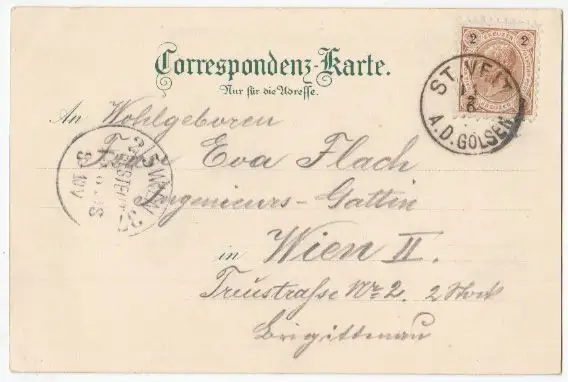 Correspondenz-Karte.
Nur für die Adresse.
2 2
ST. VEIT
A.D. GÖLSEN
An Wohlgeboren
Frau Eva Flach
Ingenieurs-Gattin
in Wien II.
Treustrasse No 2. 2 Stock
Brigittenau
WIEN